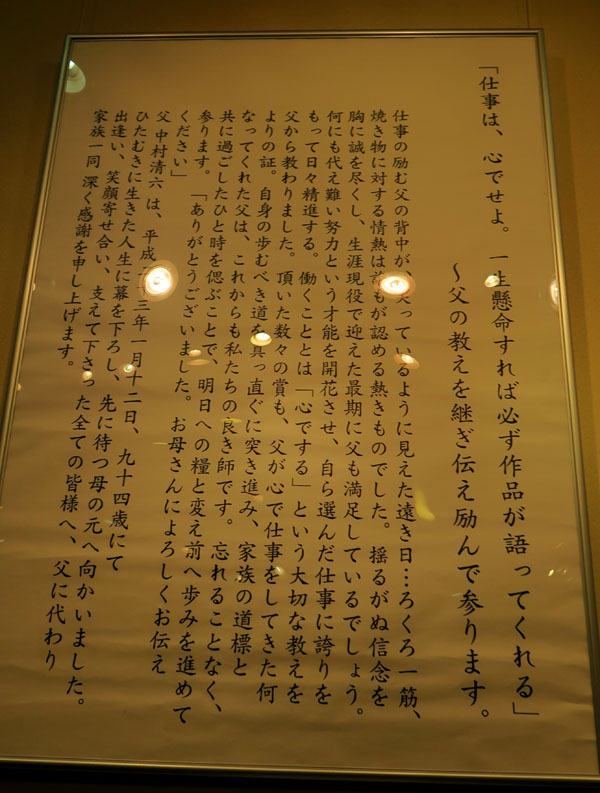 「仕事は、心でせよ。一生懸命すれば必ず作品が語ってくれる」
～父の教えを継ぎ伝え励んで参ります。
仕事の励む父の背中が、笑っているように見えた遠き日…ろくろ一筋、
焼き物に対する情熱は誰もが認める熱きものでした。揺るがぬ信念を
胸に誠を尽くし、生涯現役で迎えた最期に父も満足しているでしょう。
何にも代え難い努力という才能を開花させ、自ら選んだ仕事に誇りを
もって日々精進する。働くこととは「心でする」という大切な教えを
父から教わりました。頂いた数々の賞も、父が心で仕事をしてきた何
よりの証。自身の歩むべき道を真っ直ぐに突き進み、家族の道標と
なってくれた父は、これからも私たちの良き師です。忘れることなく、
共に過ごしたひと時を偲ぶことで、明日への糧と変え前へ歩みを進めて
参ります。「ありがとうございました。お母さんによろしくお伝え
ください」
父 中村清六 は、平成三年一月十二日、九十四歳にて
ひたむきに生きた人生に幕を下ろし、先に待つ母の元へ向かいました。
出逢い、笑顔寄せ合い、支えて下さった全ての皆様へ、父に代わり
家族一同 深く感謝を申し上げます。